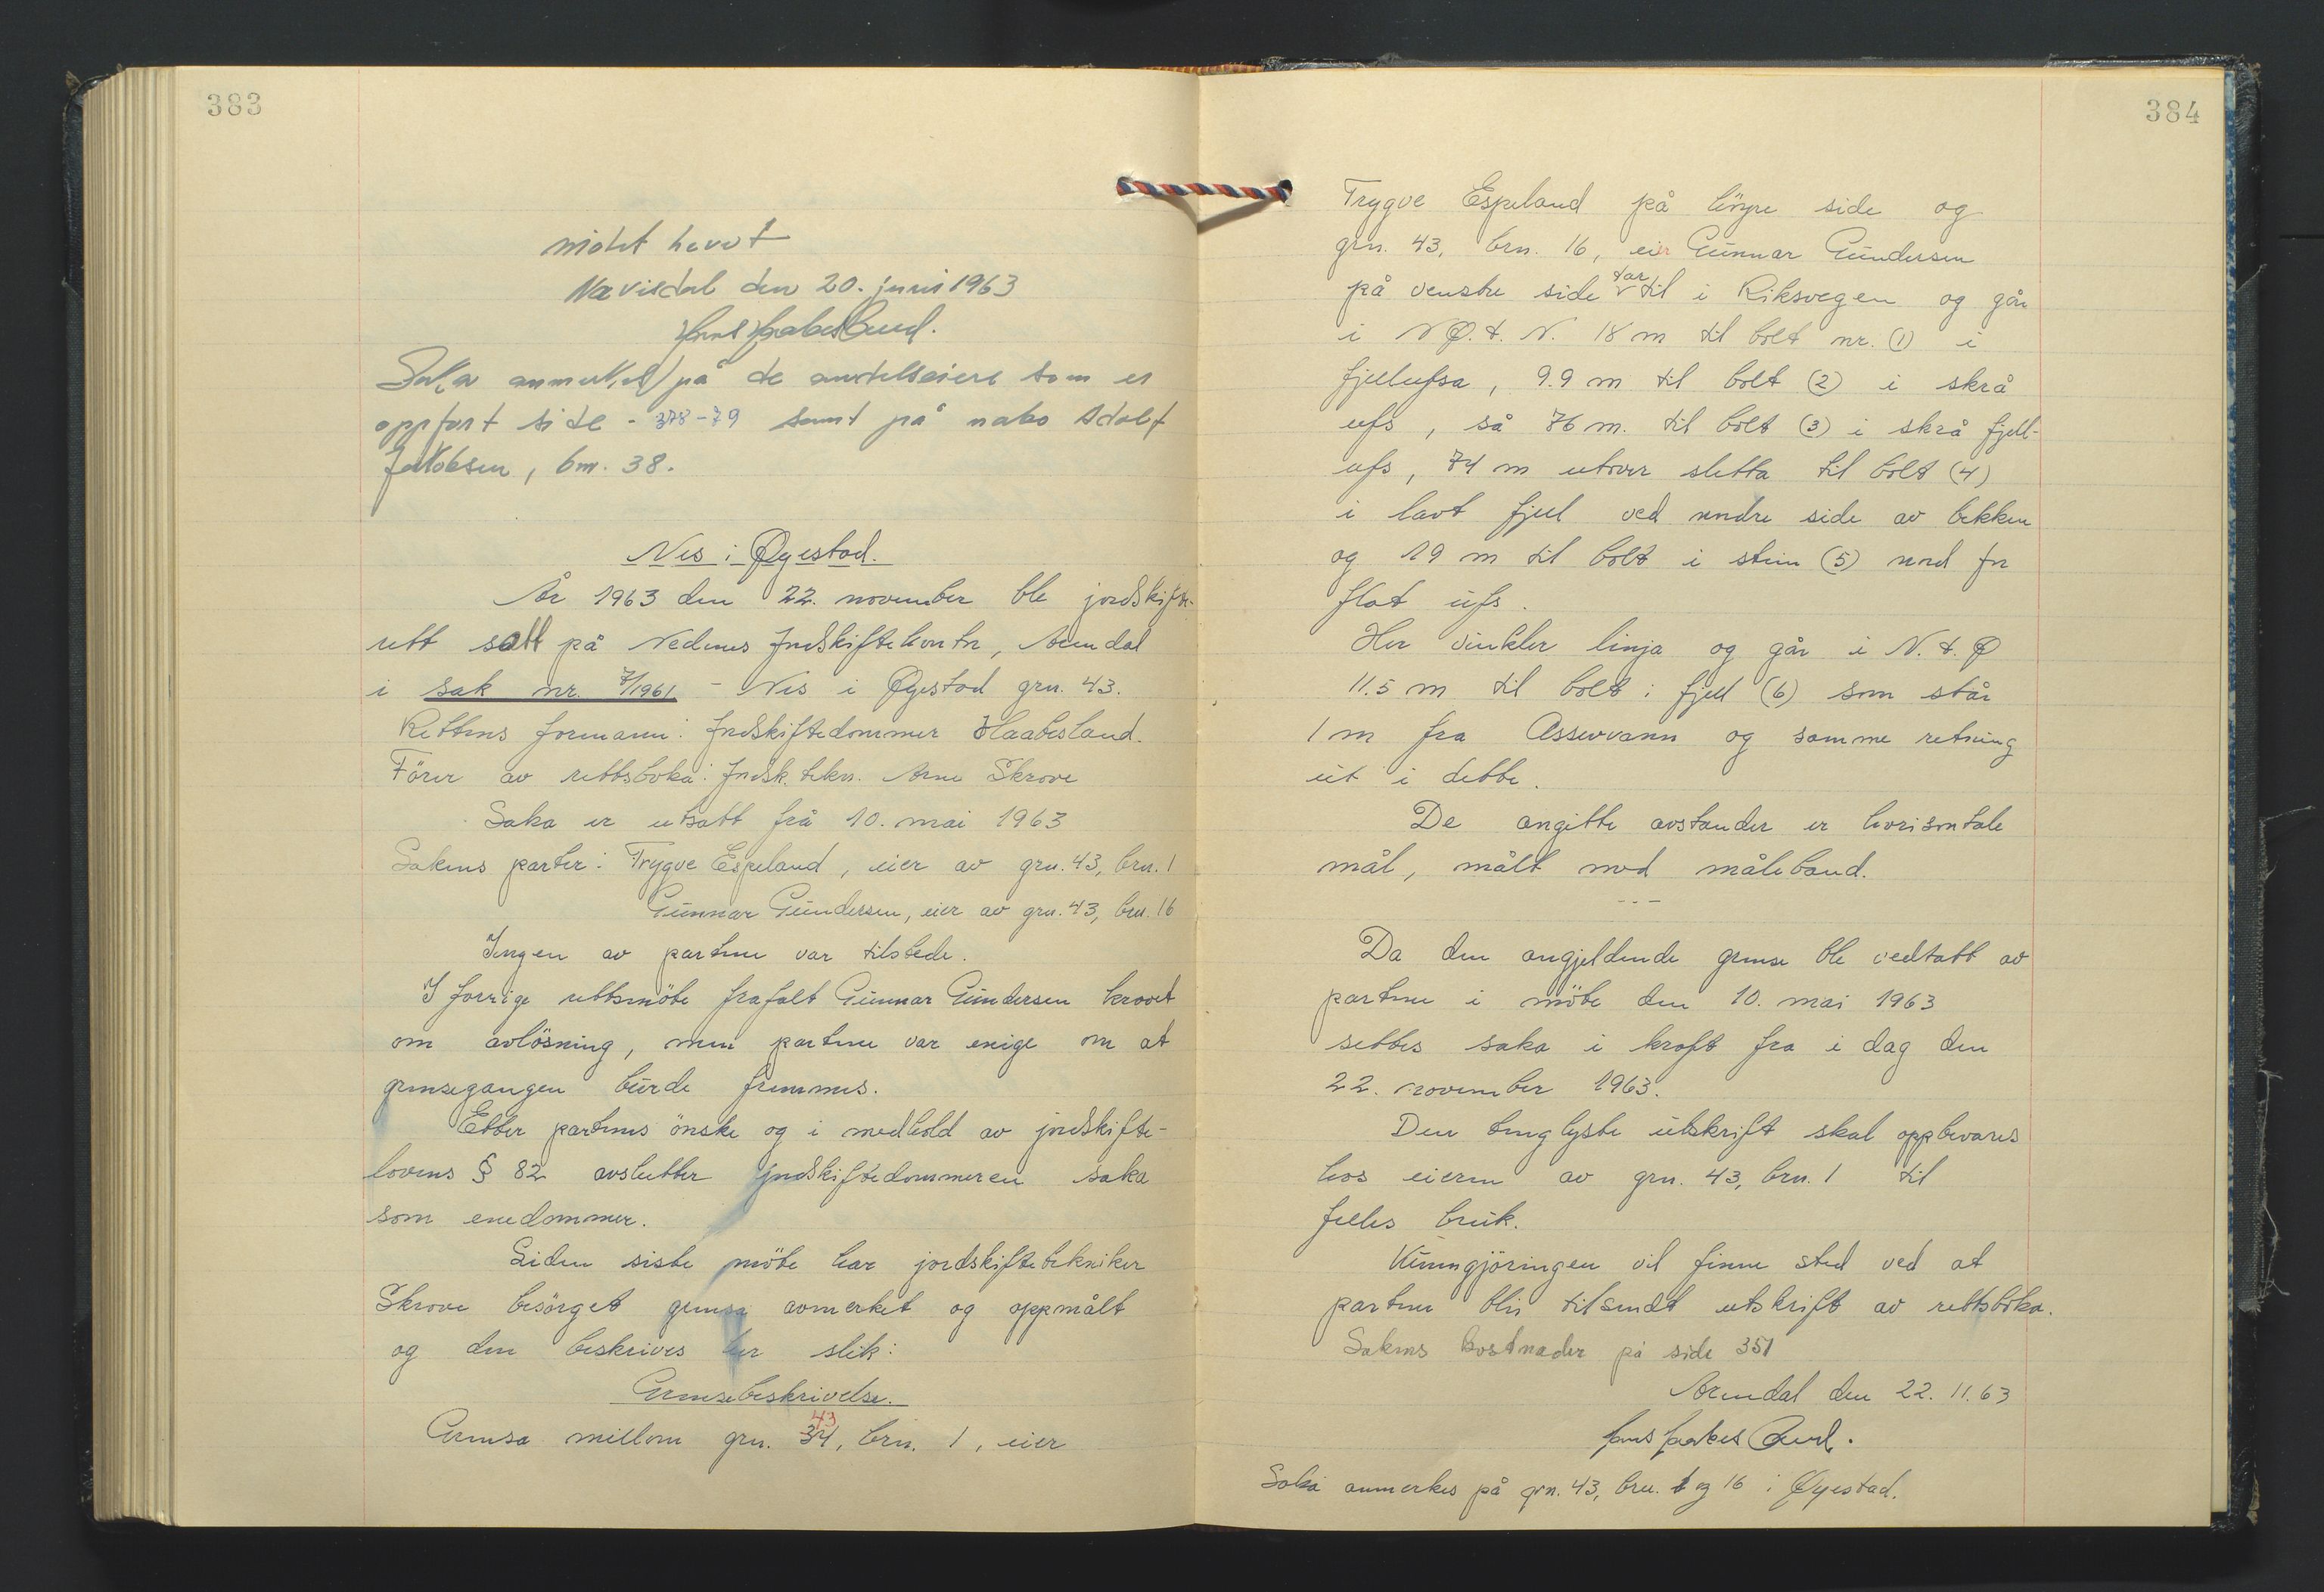 383
møtet hevet
Nævisdal den 20. juni 1963
Saka anmerkes på de andelseiere som er
oppført side - 378-79 samt på nabo Adolf
Jakobsen, bnr. 38.
Nes i Øyestad.
År 1963 den 22. november ble jordskifte-
rett satt på Nedenes jordskiftekontor, Arendal
i sak nr. 7/1961 - Nes i Øyestad grn. 43.
Rettens formann: Jordskiftedommer Haabesland.
Fører av rettsboka: Jordsk. tekn. Arne Skrove
Saka er utsatt frå 10. mai 1963
Sakens parter: Trygve Espeland, eier av grn. 43, brn. 1
Gunnar Gundersen, eier av grn. 43, brn. 16
Ingen av partene var tilstede.
I forrige rettsmöte frafalt Gunnar Gundersen kravet
om avlösning, men partene var enige om at
grensegangen burde fremmes.
Etter partenes önske og i medhold av jordskifte-
lovens § 82 avslutter jordskiftedommeren saka
som enedommer.
Siden siste möte har jordskiftetekniker
Skrove besörget grensa avmerket og oppmålt
og den beskrives her slik:
Grensebeskrivelse.
43
Grensa mellom grn. 34, brn. 1, eier
384
Trygve Espeland på höyre side og
grn. 43, brn. 16, eier Gunnar Gundersen
på venstre side tar til i Riksvegen og går
i N Ø. t. N. 18 m til bolt nr. (1) i
fjellufsa, 9.9 m til bolt (2) i skrå
ufs, så 76 m. til bolt (3) i skrå fjell-
ufs, 74 m utover sletta til bolt (4)
i lavt fjell ved nordre side av bekken
og 19 m til bolt i stein (5) nord for
flat ufs.
Her vinkler linja og går i N. t. Ø
11.5 m til bolt i fjell (6) som står
1 m fra Assevvann og samme retning
ut i dette.
De angitte avstander er horisontale
mål, målt med måleband.
---
Da den angjeldende grense ble vedtatt av
partene i möte den 10. mai 1963
settes saka i kraft fra i dag den
22. november 1963.
Den tinglyste utskrift skal oppbevares
hos eieren av grn. 43, brn. 1 til
felles bruk.
Kunngjöringen vil finne sted ved at
partene blir tilsendt utskrift av rettsboka.
Sakens kostnader på side 351
Arendal den 22. 11. 63
Saka anmerkes på grn. 43, brn. 1 og 16 i Øyestad.